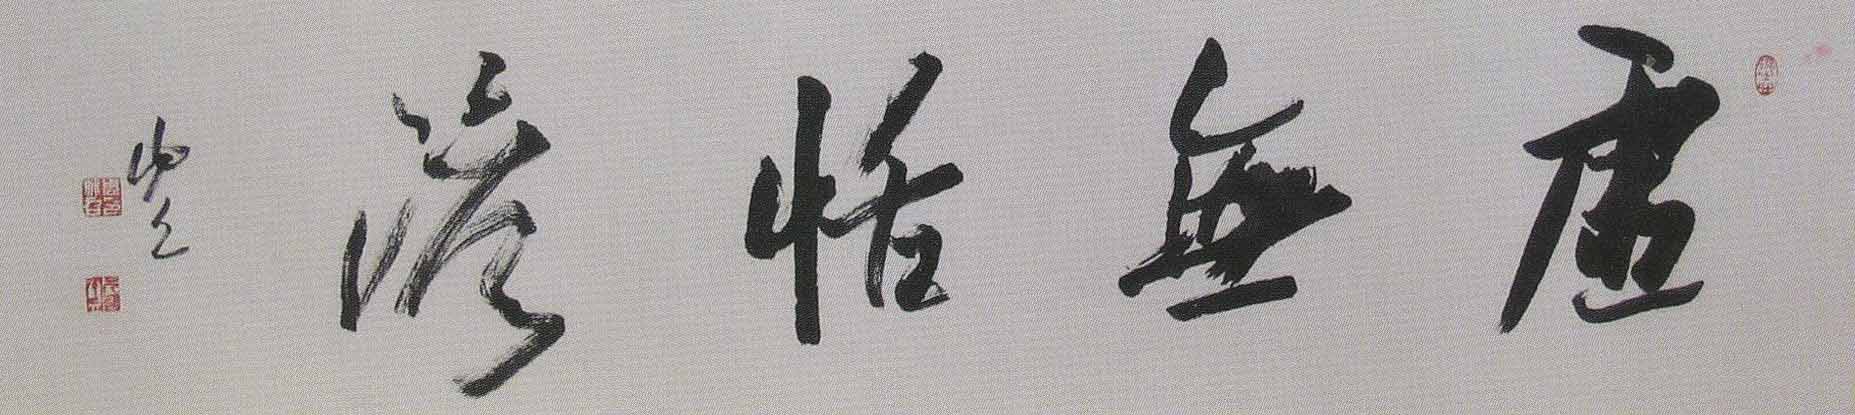 虛無恬淡